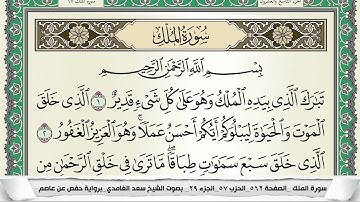 الجزء التاسع والعشرون
سورة الملك ٦٧
سُورَةُ المُلْكِ
بِسْمِ اللَّهِ الرَّحْمَٰنِ الرَّحِيمِ
تَبَٰرَكَ الَّذِي بِيَدِهِ الْمُلْكُ وَهُوَ عَلَىٰ كُلِّ شَيْءٍ قَدِيرٌ ١ الَّذِي خَلَقَ
الْمَوْتَ وَالْحَيَوٰةَ لِيَبْلُوَكُمْ أَيُّكُمْ أَحْسَنُ عَمَلًا ۚ وَهُوَ الْعَزِيزُ الْغَفُورُ ٢
الَّذِي خَلَقَ سَبْعَ سَمَٰوَٰتٍ طِبَاقًا ۖ مَّا تَرَىٰ فِي خَلْقِ الرَّحْمَٰنِ مِن
سورة الملك _الصفحة ٥٦٢_ الحزب ٥٧_الجزء ٢٩_ بصوت الشيخ سعد الغامدي_برواية حفص عن عاصم